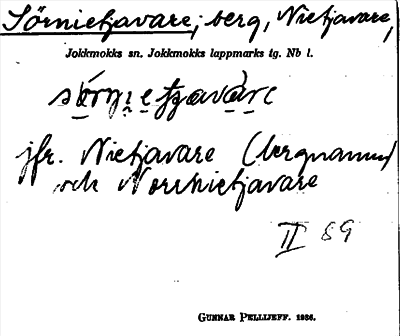 Sörnietjavare; berg, Nietjavare,
Jokkmokks sn. Jokkmokks lappmarks tg. Nb l.
jfr. Nietjavare (bergnamn)
och Norrnietjavare
II 89
GUNNAR PELLIJEFF. 1936.